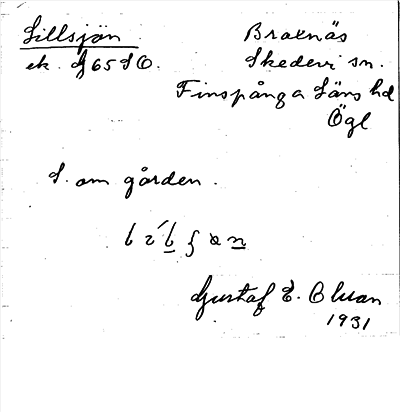 Lillsjön
ek. G 65 S O.
Bralnäs
Skedevi sn.
Finspånga Läns hd
Ögl
S. om gården.
Gustaf E. Olsson
1931